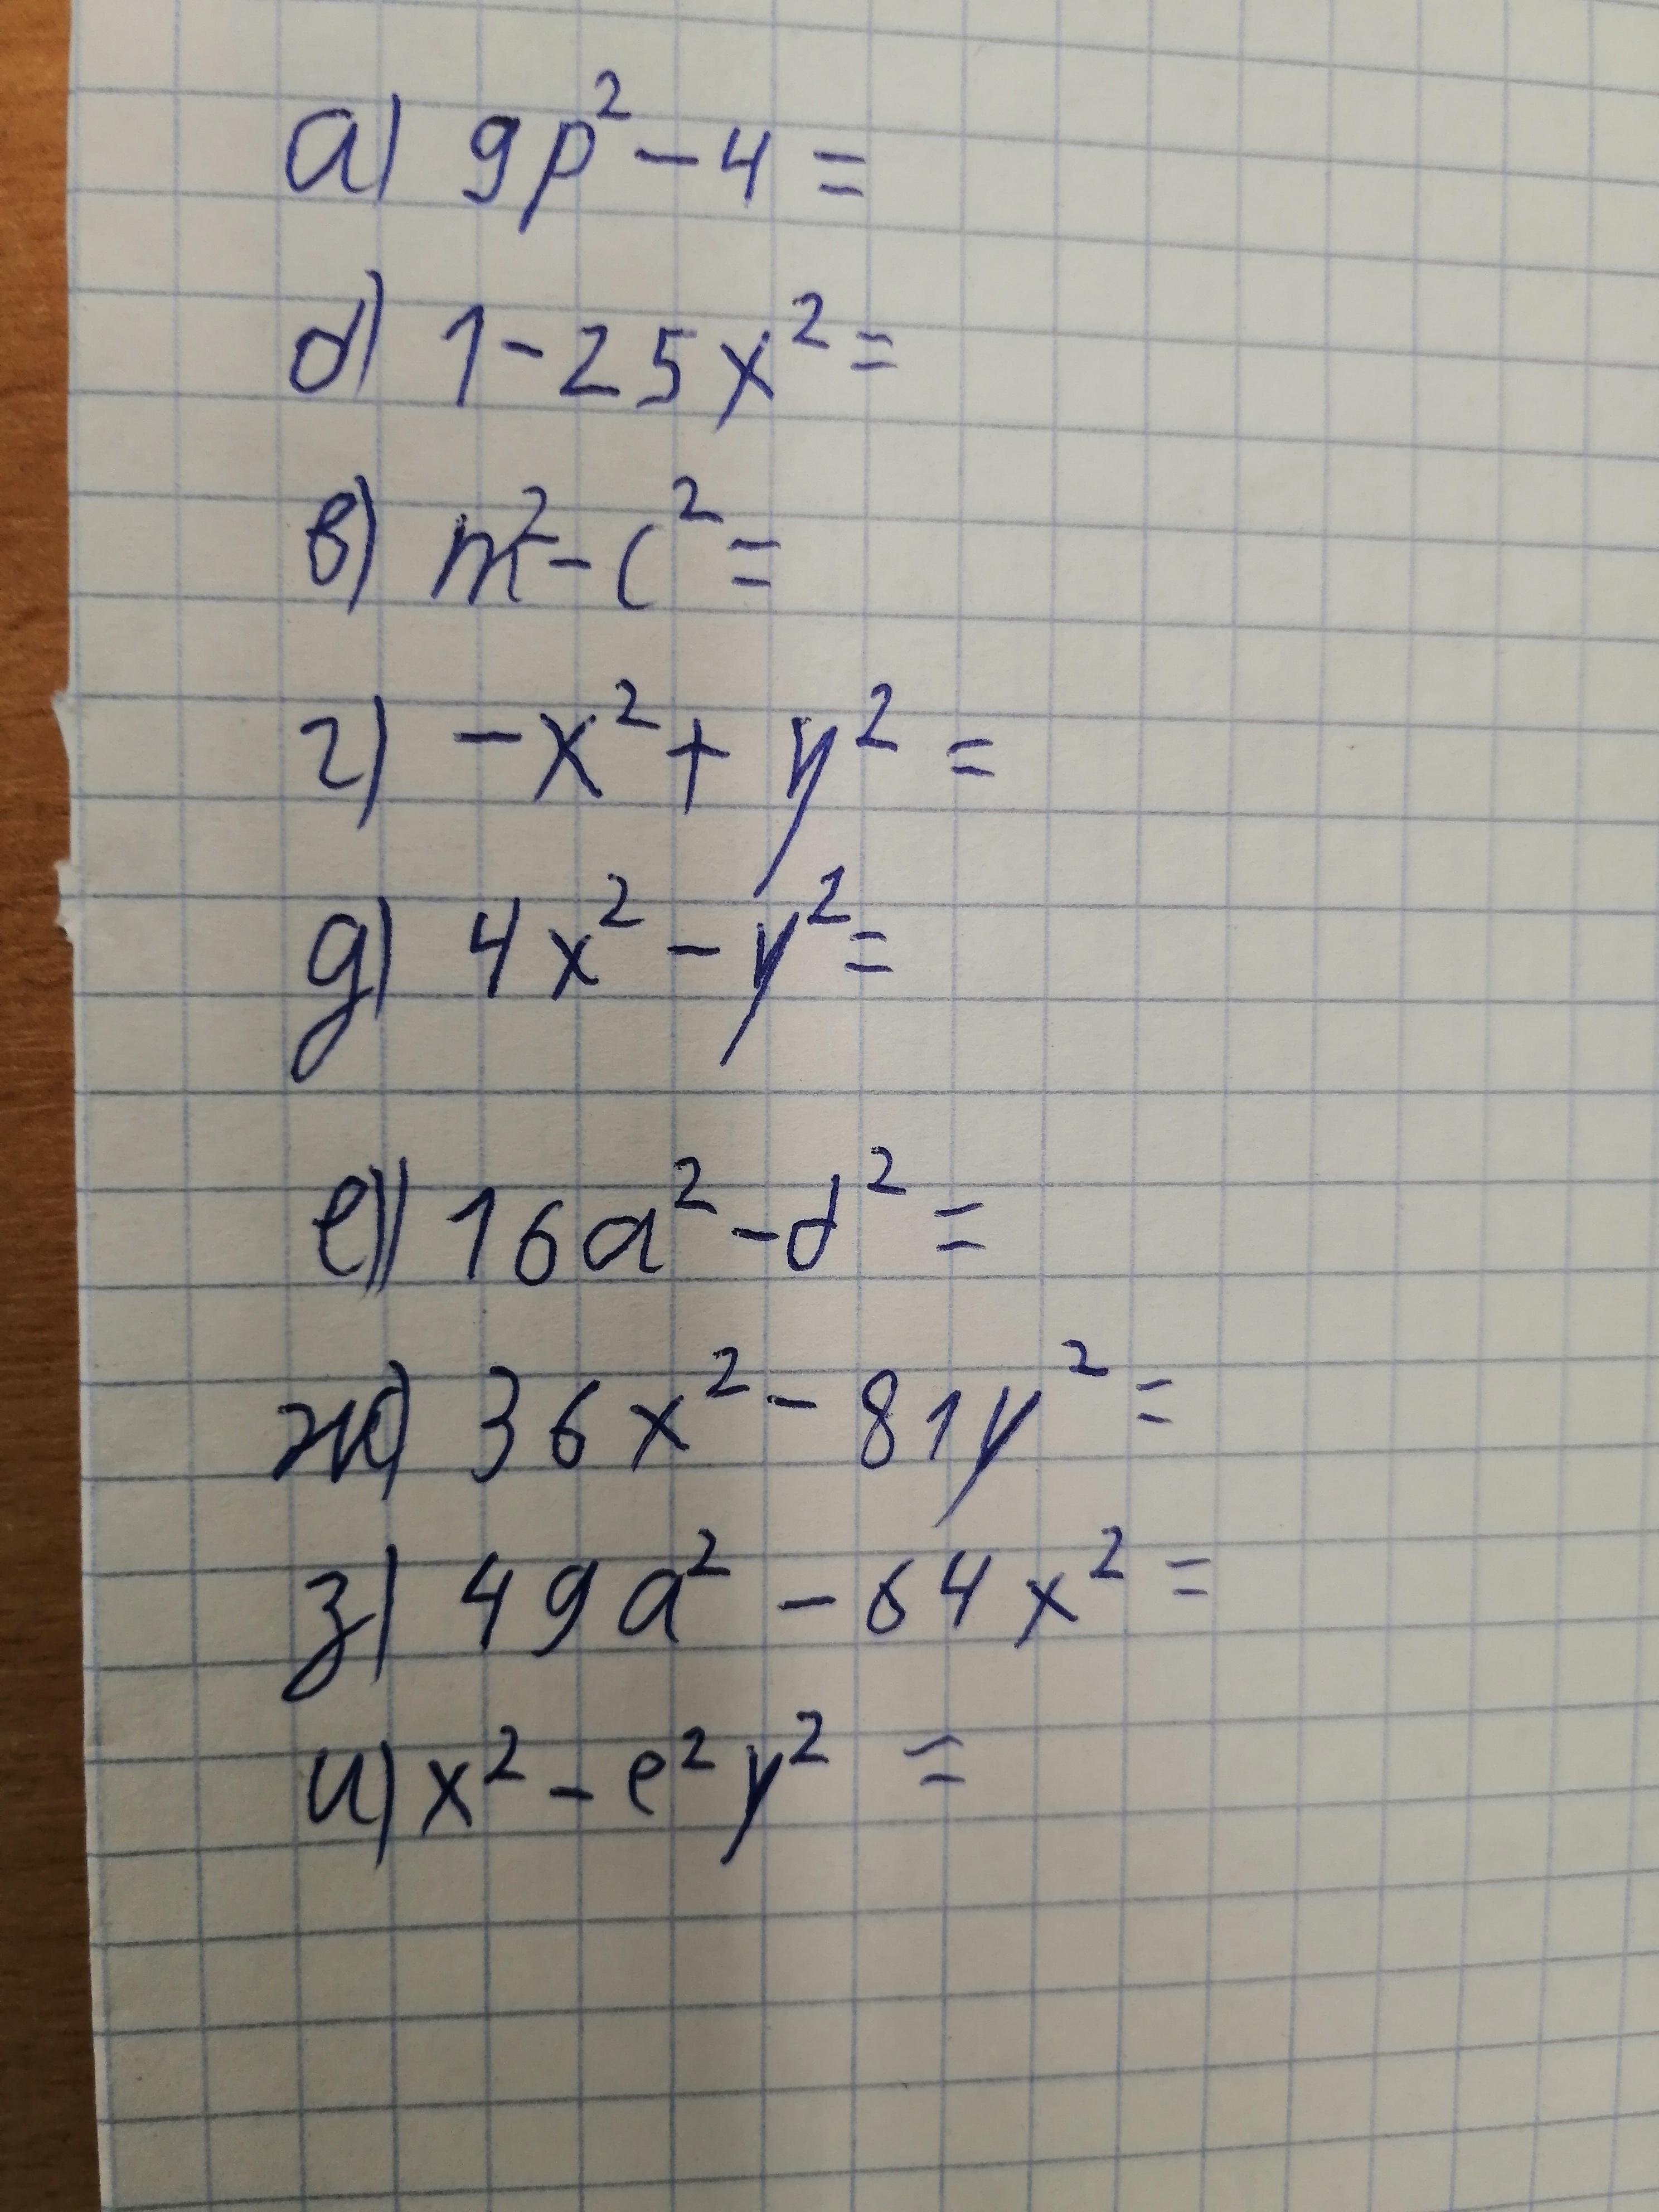 а) 9p² - 4 =
б) 1 - 25x² =
в) m² - c² =
г) -x² + y² =
д) 4x² - y² =
е) 16a² - d² =
ж) 36x² - 81y² =
з) 49a² - 64x² =
и) x² - e²y² =